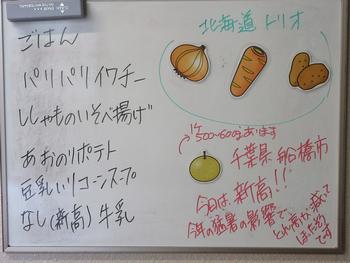 ごはん
パリパリイワチー
ししゃものいそべ揚げ
あおのりポテト
豆乳いりコーンスープ
なし(新高) 牛乳
北海道トリオ
500~600gあります
千葉県 船橋市
今日は、新高!!
今年の猛暑の影響で、
とれ高が減って
です